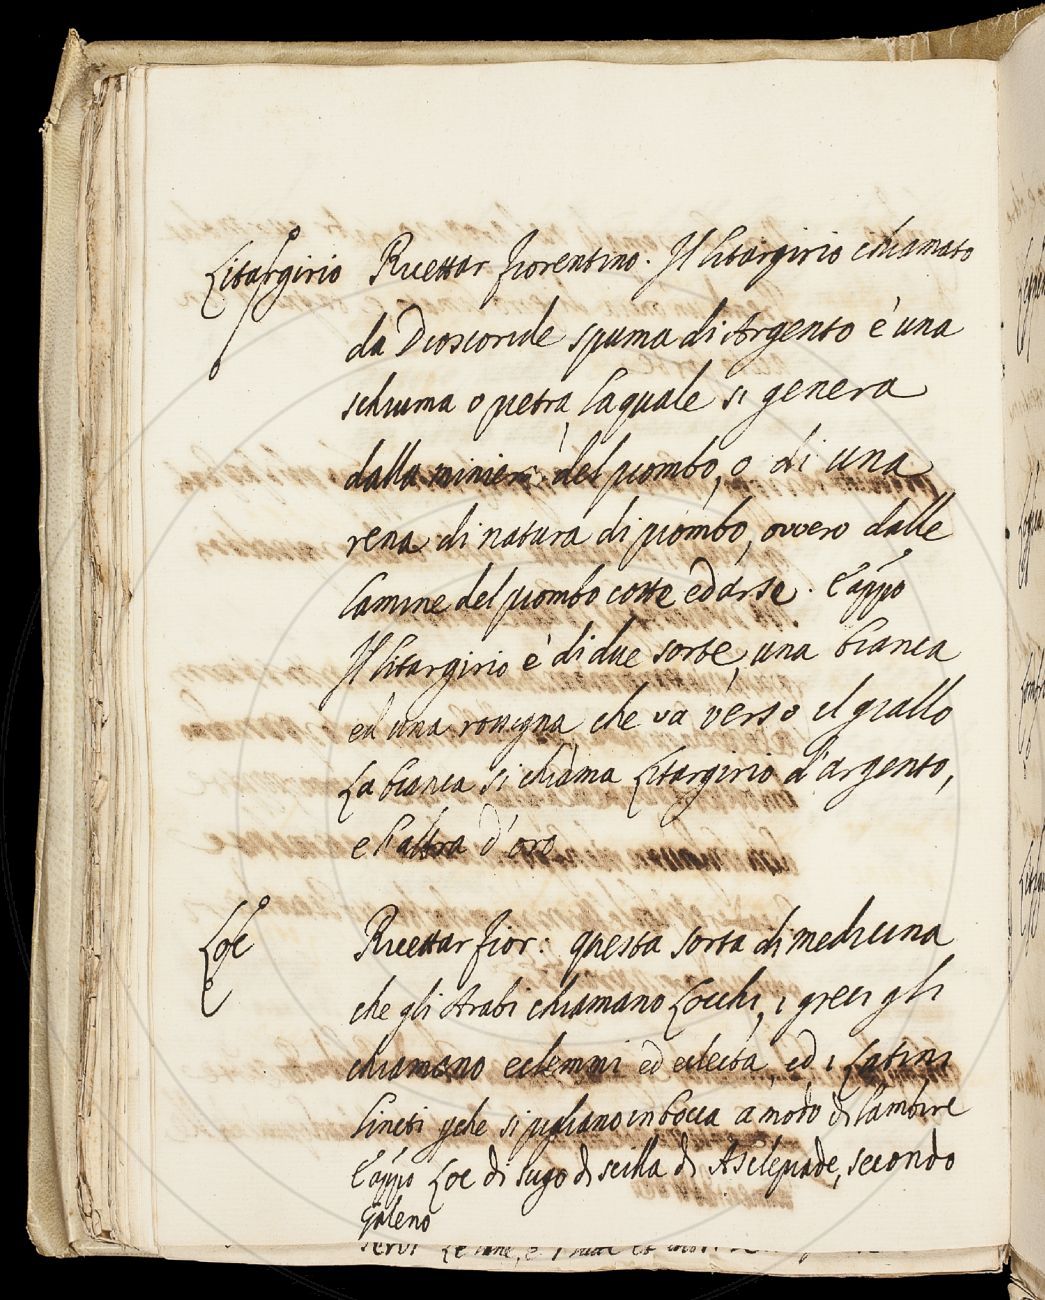 Litargirio Ricettar fiorentino. Il litargirio chiamato
da Dioscoride spuma di Argento è una
schiuma o pietra, la quale si genera
dalla miniera del piombo, o di una
rena di natura di piombo, ovvero dalle
lamine del piombo cotte ed arse. E appo
Il litargirio è di due sorte, una bianca
ed una rossigna che va verso il giallo
La bianca si chiama Litargirio d'argento,
e l'altra d'oro
Loc Ricettar fior: questa sorta di medicina
che gli Arabi chiamano Locchi, i greci gli
chiamano eclemmi ed eclecta, ed i Latini
lincti pche si pigliano in bocca a modo di lambire
E appo Loc di sugo di scilla di Asclepiade, secondo
Galeno